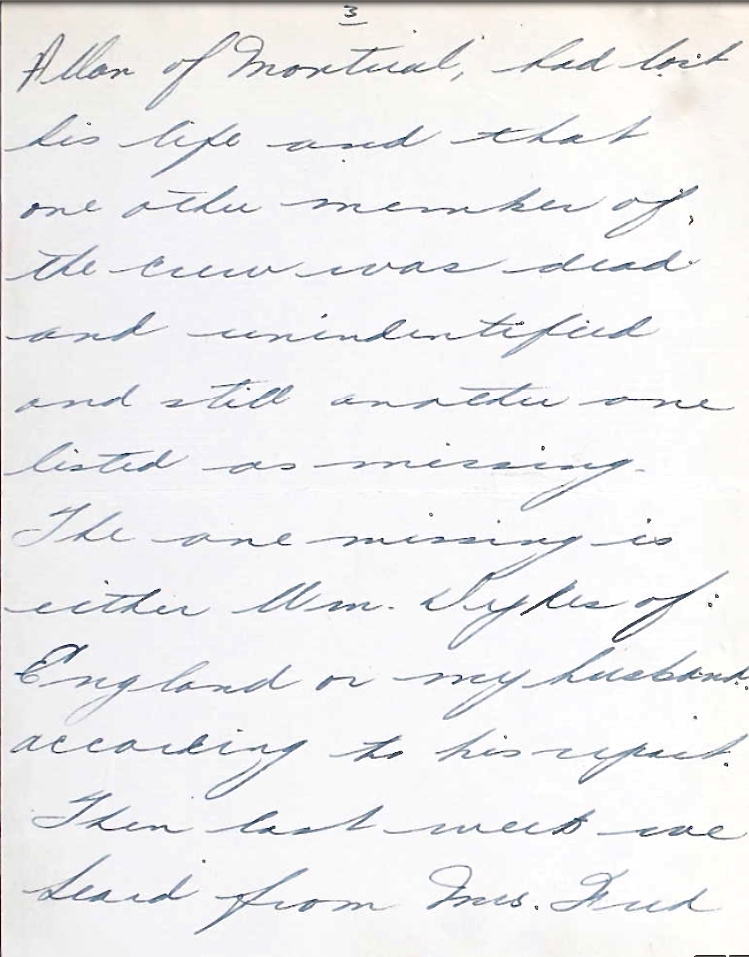 3
Allan of Montreal, had lost
his life and that
one other member of
the crew was dead
and unindentified
and still another one
listed as missing.
The one missing is
either Wm. Dykes of
England or my husband
according to his report.
Then last week we
heard from Mrs. Fred